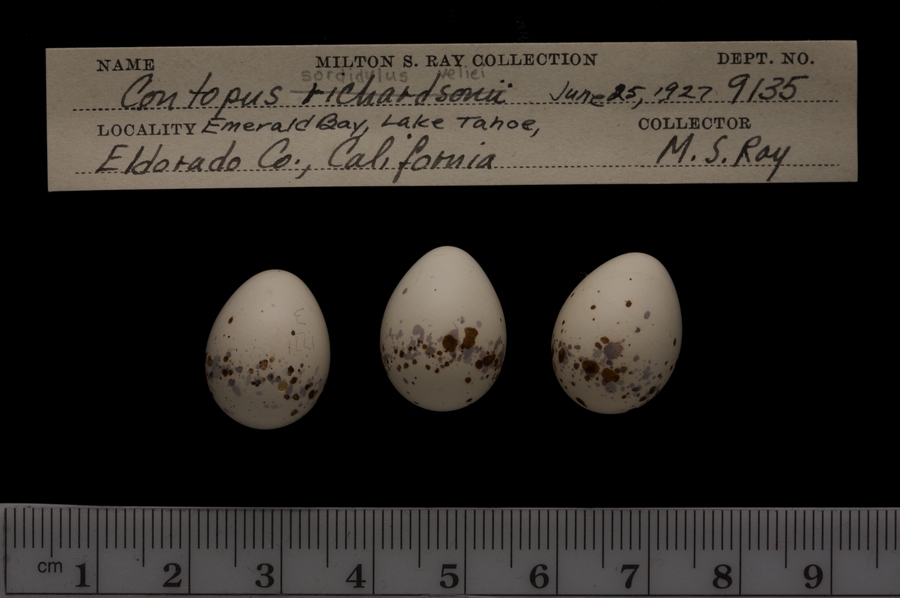 NAME MILTON S. RAY COLLECTION DEPT. NO.
sordidulus veliei
Contopus richardsonii June 25, 1927 9135
LOCALITY Emerald Bay, Lake Tahoe, COLLECTOR
Eldorado Co., California M. S. Ray
cm 1 2 3 4 5 6 7 8 9